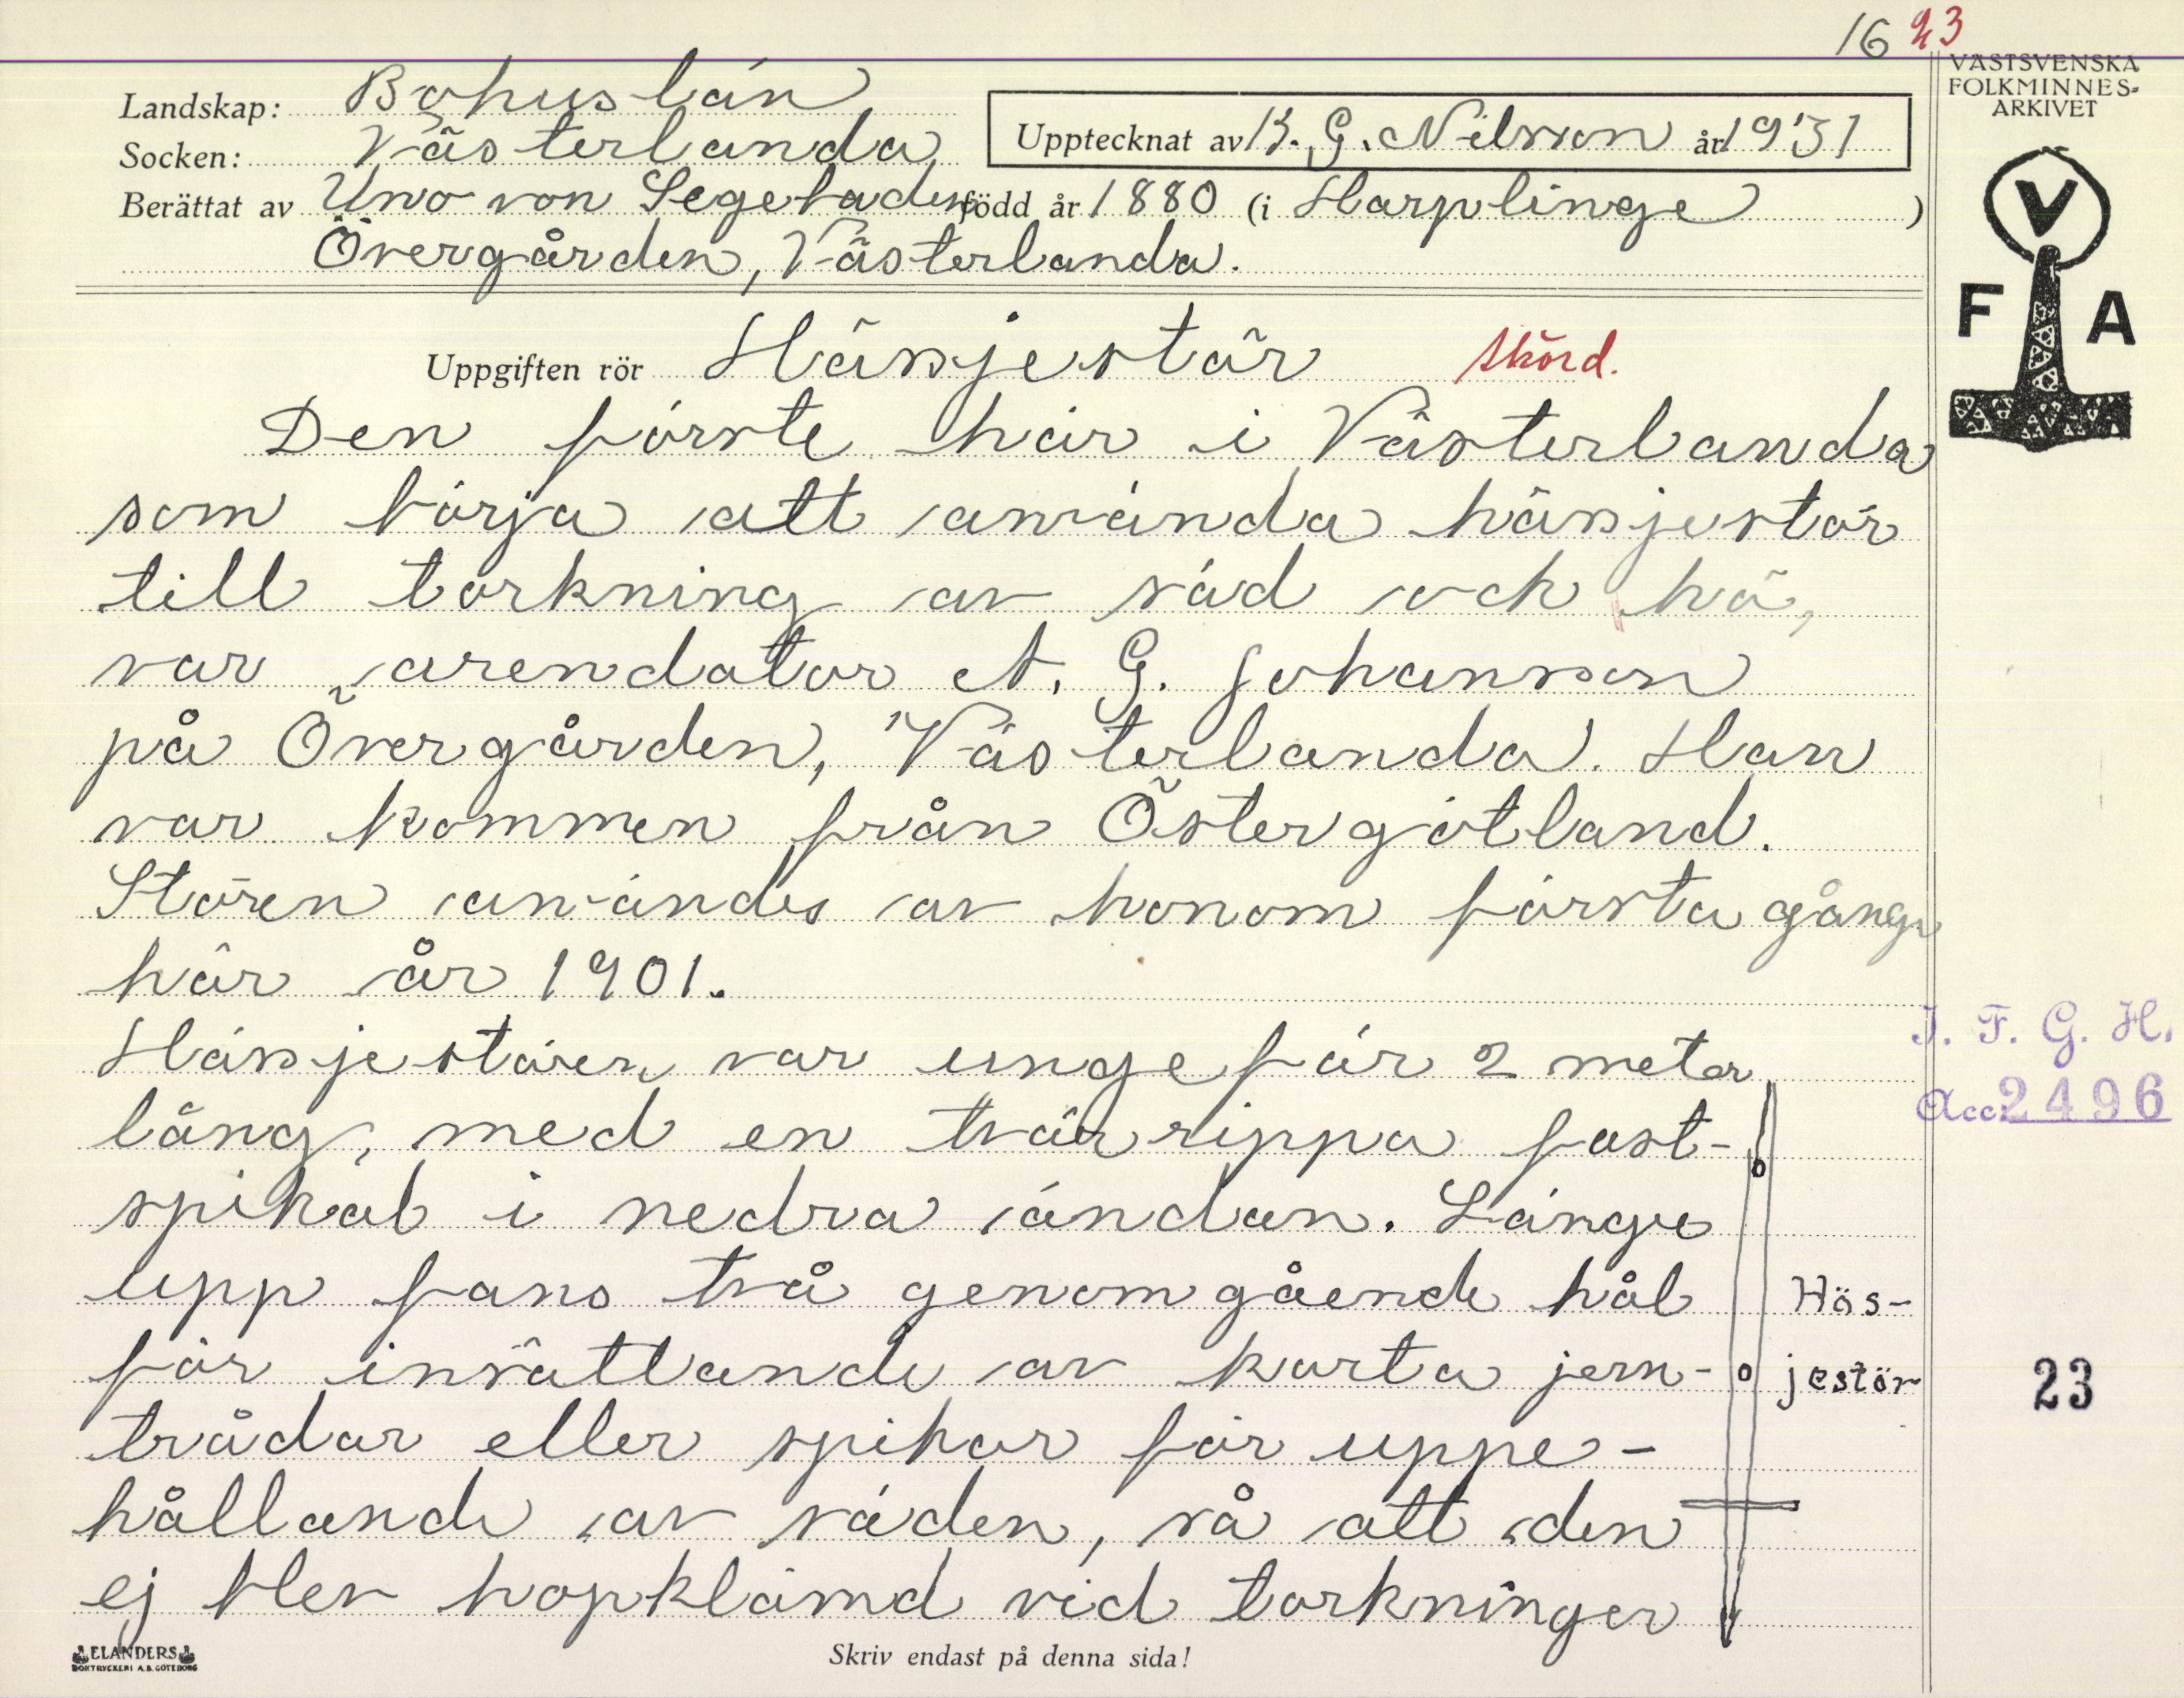 16 23
VÄSTSVENSKA
FOLKMINNES-
ARKIVET
V
F A
Landskap: Bohuslän
Socken: Västerlanda
Upptecknat av K. G. Nilsson år 1931
Berättat av Uno von Segebaden född år 1880 (i Harplinge )
Övergården, Västerlanda.
Uppgiften rör Hässjestör skörd.
Den förste här i Västerlanda
som börja att använda hässjestör
till torkning av säd och hö,
var arendator A. G. Johansson
på Övergården, Västerlanda. Han
var kommen från Östergötland.
Stören användes av honom första gången
här år 1901.
Hässjestören var ungefär 2 meter
lång, med en tvärrippa fast-
spikab i nedra ändan. Längre
upp fans två genomgående hål
för insättande av korta jern-
trådar eller spikar för uppe-
hållande av säden, så att den
ej blev hopklämd vid torkningen
Hös-
jestör
I. F. G. H.
Acc: 2496
23
ELANDERS
BOKTRYCKERI A.B. GÖTEBORG
Skriv endast på denna sida!